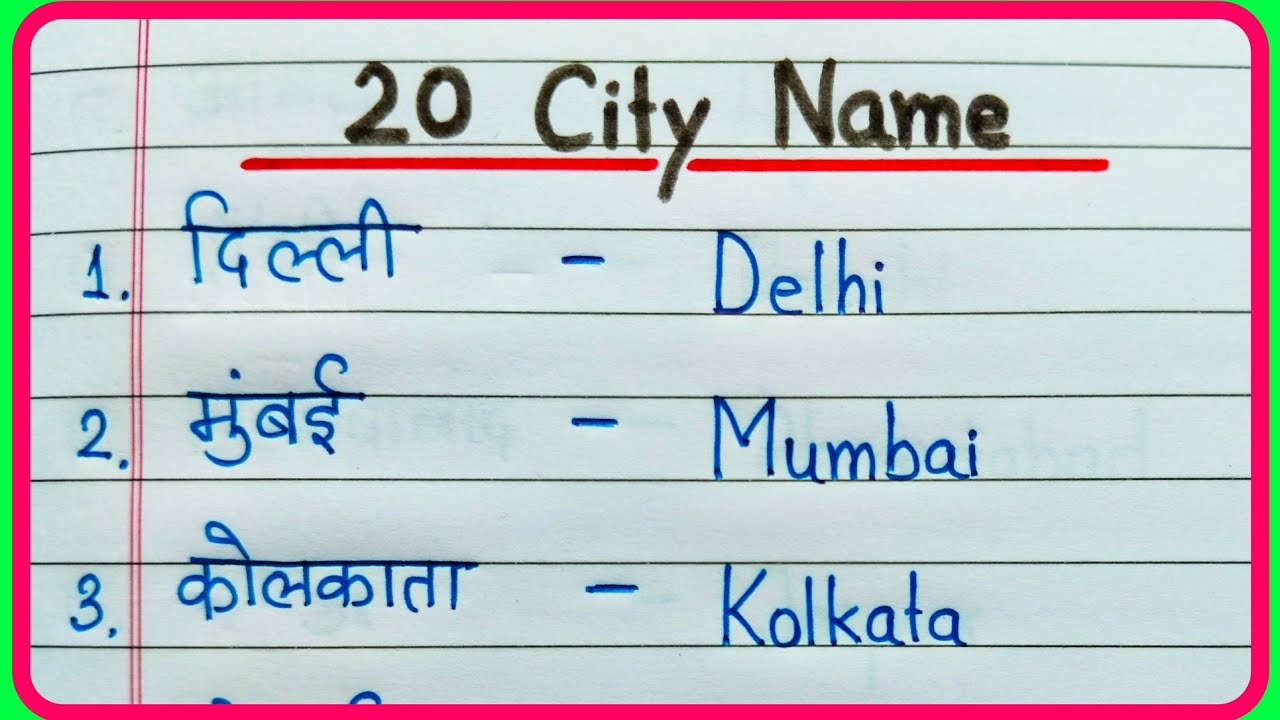 20 City Name
1. दिल्ली - Delhi
2. मुंबई - Mumbai
3. कोलकाता - Kolkata